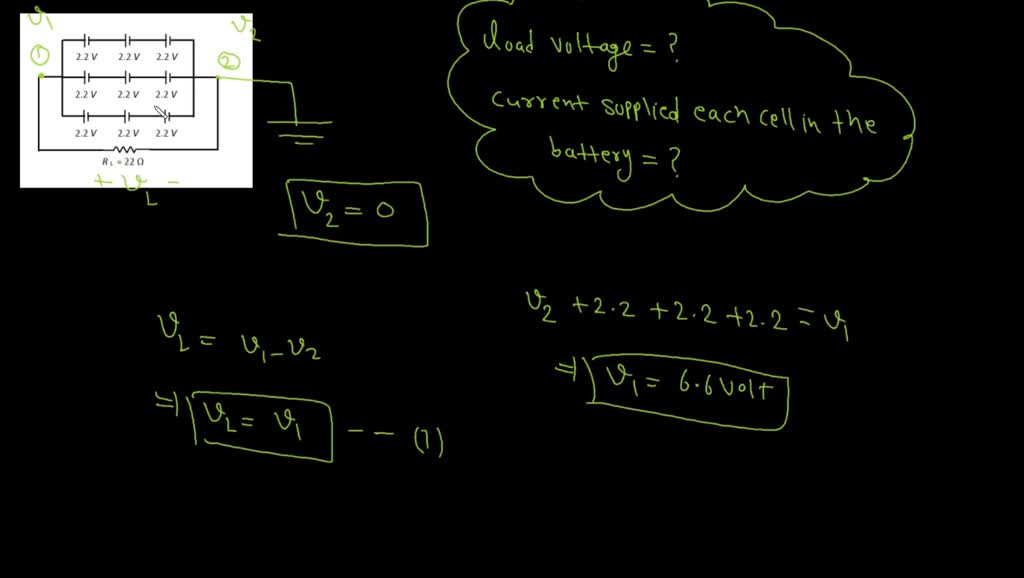 V1
V2
①
②
2.2 V 2.2 V 2.2 V
2.2 V 2.2 V 2.2 V
2.2 V 2.2 V 2.2 V
R L = 22 Ω
+ VL -
load voltage = ?
current supplied each cell in the
battery = ?
V2 = 0
V2 + 2.2 + 2.2 + 2.2 = V1
⇒ V1 = 6.6 Volt
VL = V1 - V2
⇒ VL = V1 -- (1)